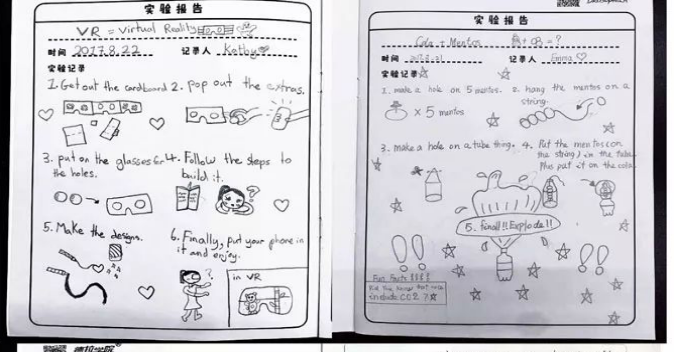 实验报告
VR = Virtual Reality
时间 2017.8.22 记录人 Kathy
实验记录
1. Get out the cardboard
2. pop out the extras.
3. put on the glasses for
the holes.
4. Follow the steps to
build it.
5. Make the designs.
6. Finally, put your phone in
it and enjoy.
in VR
实验报告
Cola + Mentos = ?
时间 记录人
实验记录
1. make a hole on 5 mentos.
× 5 mentos
2. hang the mentos on a
string.
3. make a hole on a tube thing.
4. Put the mentos (on
the string) in the tube.
Plus put it on the cola.
5. final!! Explode!!
Fun Facts
include CO2 ?